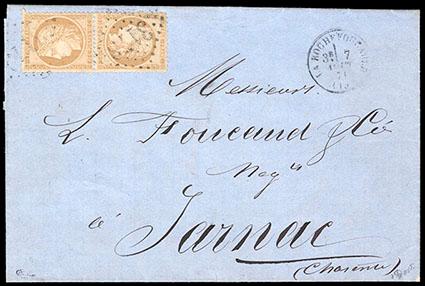 LA ROCHEFOUCAULD
7
71
Messieurs
L. Foucaud & Cie
Negts
à Jarnac
(Charente)